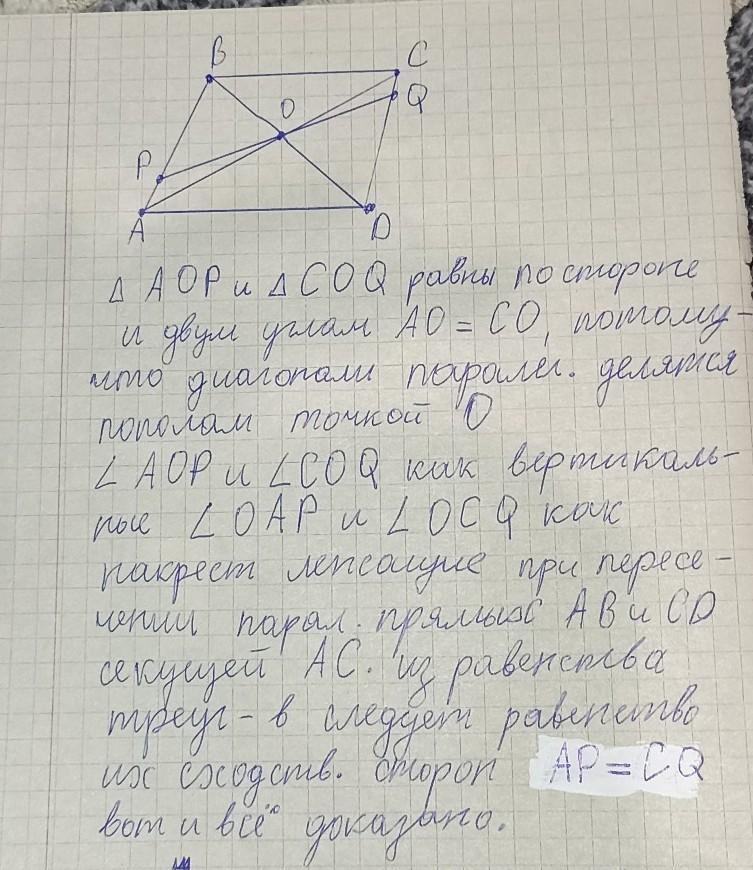 B
C
Q
O
P
A
D
△ AOP и △ COQ равны по стороне
и двум углам AO = CO, потому-
что диагонали паралел. делятся
пополам точкой O
∠ AOP и ∠COQ как вертикаль-
ные ∠OAP и ∠OCQ как
накрест лежащие при пересе-
чении парал. прямых AB и CD
секущей AC. из равенства
треуг-в следует равенство
их сходств. сторон AP = CQ
вот и всё доказано.